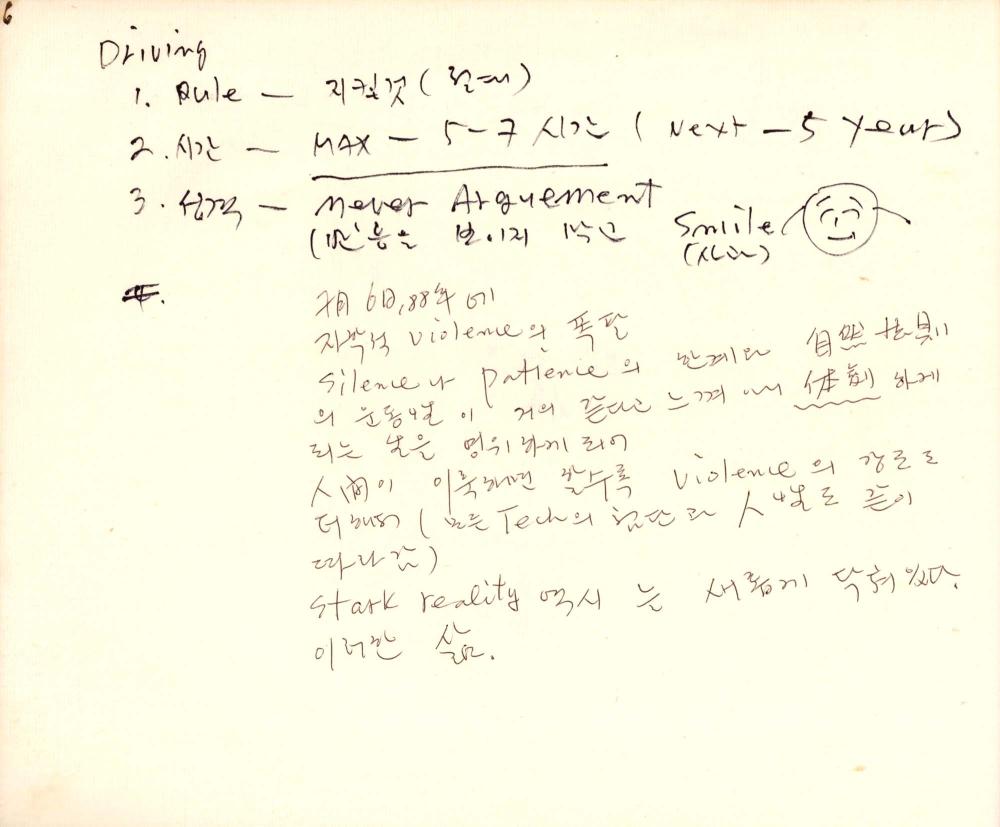 6
Driving
1. Rule — 지킬것 (절대)
2. 시간 — MAX — 5-7 시간 (Next — 5 Year)
3. 성격 — Never Arguement
(반응을 보이지 말고 Smile
자학적 violence의 폭발
Silence나 patience의 한계와 自然法則
의 운동성이 거의 같다고 느껴 하게
되는 날을 하게 되어
人間이 수록 violence의 강도도
더해져 (모든 Tech의 첨단과 人性도 같이
따라감)
Stark reality 역시 는 새롭게 닥쳐 있다.
이러한 삶.